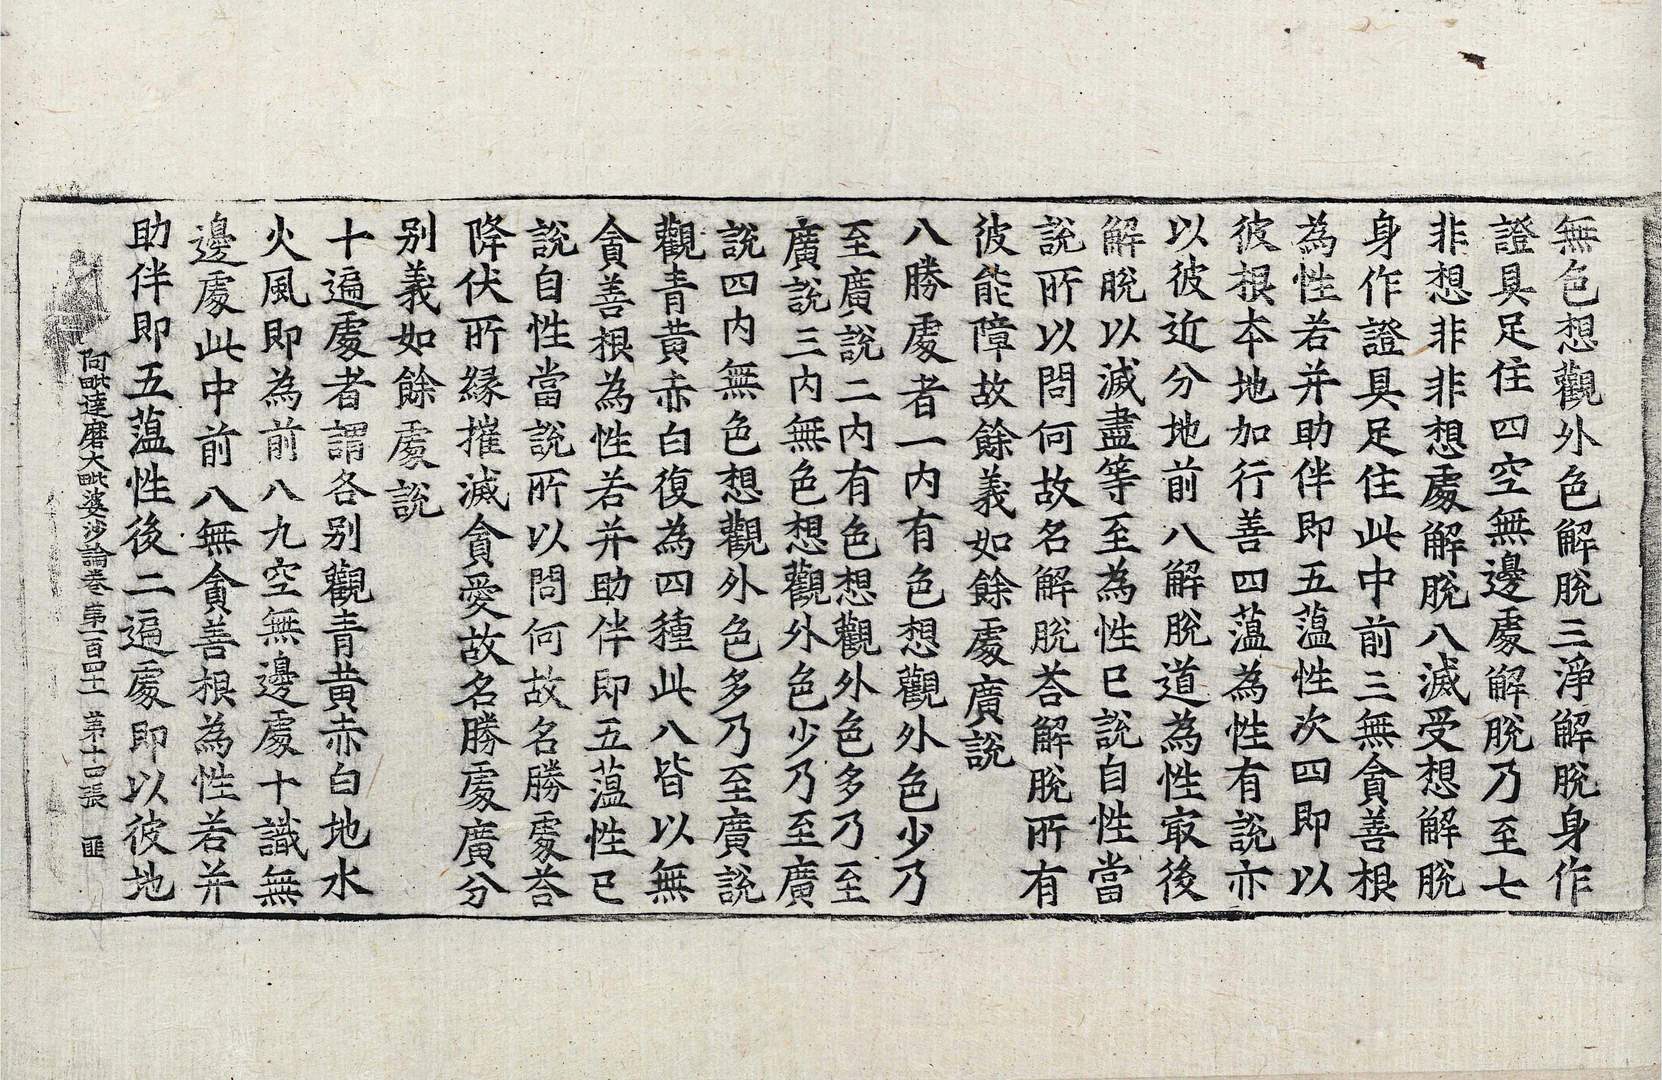 無色想觀外色解脫三淨解脫身作
證具足住四空無邊處解脫乃至七
非想非非想處解脫八滅受想解脫
身作證具足住此中前三無貪善根
為性若并助伴即五蕰性次四即以
彼根本地加行善四蕰為性有說亦
以彼近分地前八解脫道為性㝡後
解脫以滅盡等至為性已說自性當
說所以問何故名解脫荅解脫所有
彼能障故餘義如餘處廣說
八勝處者一內有色想觀外色少乃
至廣說二內有色想觀外色多乃至
廣說三內無色想觀外色少乃至廣
說四內無色想觀外色多乃至廣說
觀青黃赤白復為四種此八皆以無
貪善根為性若并助伴即五蕰性已
說自性當說所以問何故名勝處荅
降伏所緣摧滅貪愛故名勝處廣分
別義如餘處說
十遍處者謂各別觀青黃赤白地水
火風即為前八九空無邊處十識無
邊處此中前八無貪善根為性若并
助伴即五蕰性後二遍處即以彼地
阿毗達磨大毗婆沙論卷第一百四十一 第十四張 匪